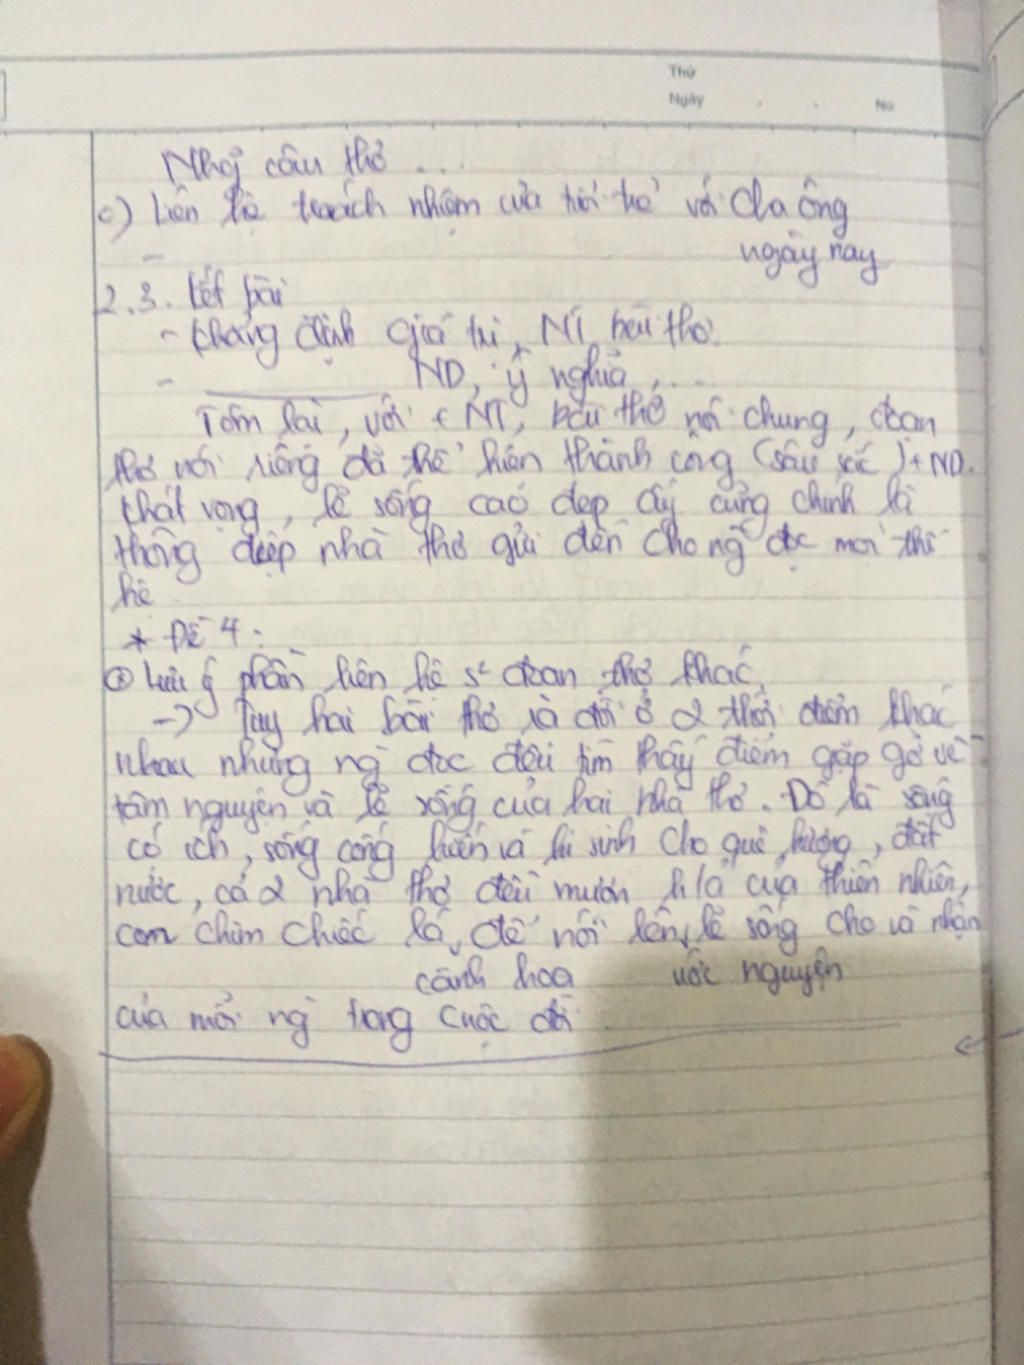 Thứ
Ngày . . No
Nhạ câu thơ ...
c) Liên hệ trách nhiệm của tuổi trẻ với cha ông
ngày nay
-
2.3. Kết bài
- Khẳng định giá trị, NT, bài thơ.
- ND, ý nghĩa, ...
Tóm lại, với + NT, bài thơ nói chung, đoạn
thơ nói riêng đã thể hiện thành công (sâu sắc) + ND.
Khát vọng, lẽ sống cao đẹp ấy cũng chính là
thông điệp nhà thơ gửi đến cho ng đọc mọi thế
hệ
* Đề 4:
* Lưu ý phần liên hệ s² đoạn thơ khác.
-> Tuy hai bài thơ ra đời ở 2 thời điểm khác
nhau nhưng ng đọc đều tìm thấy điểm gặp gỡ về
tâm nguyện và lẽ sống của hai nhà thơ. Đó là sống
có ích, sống cống hiến và hi sinh cho quê hương, đất
nước, cả 2 nhà thơ đều mượn h/ả của thiên nhiên,
con chim chiếc lá, để nói lên lẽ sống cho và nhận
cành hoa ước nguyện
của mỗi ng trong cuộc đời